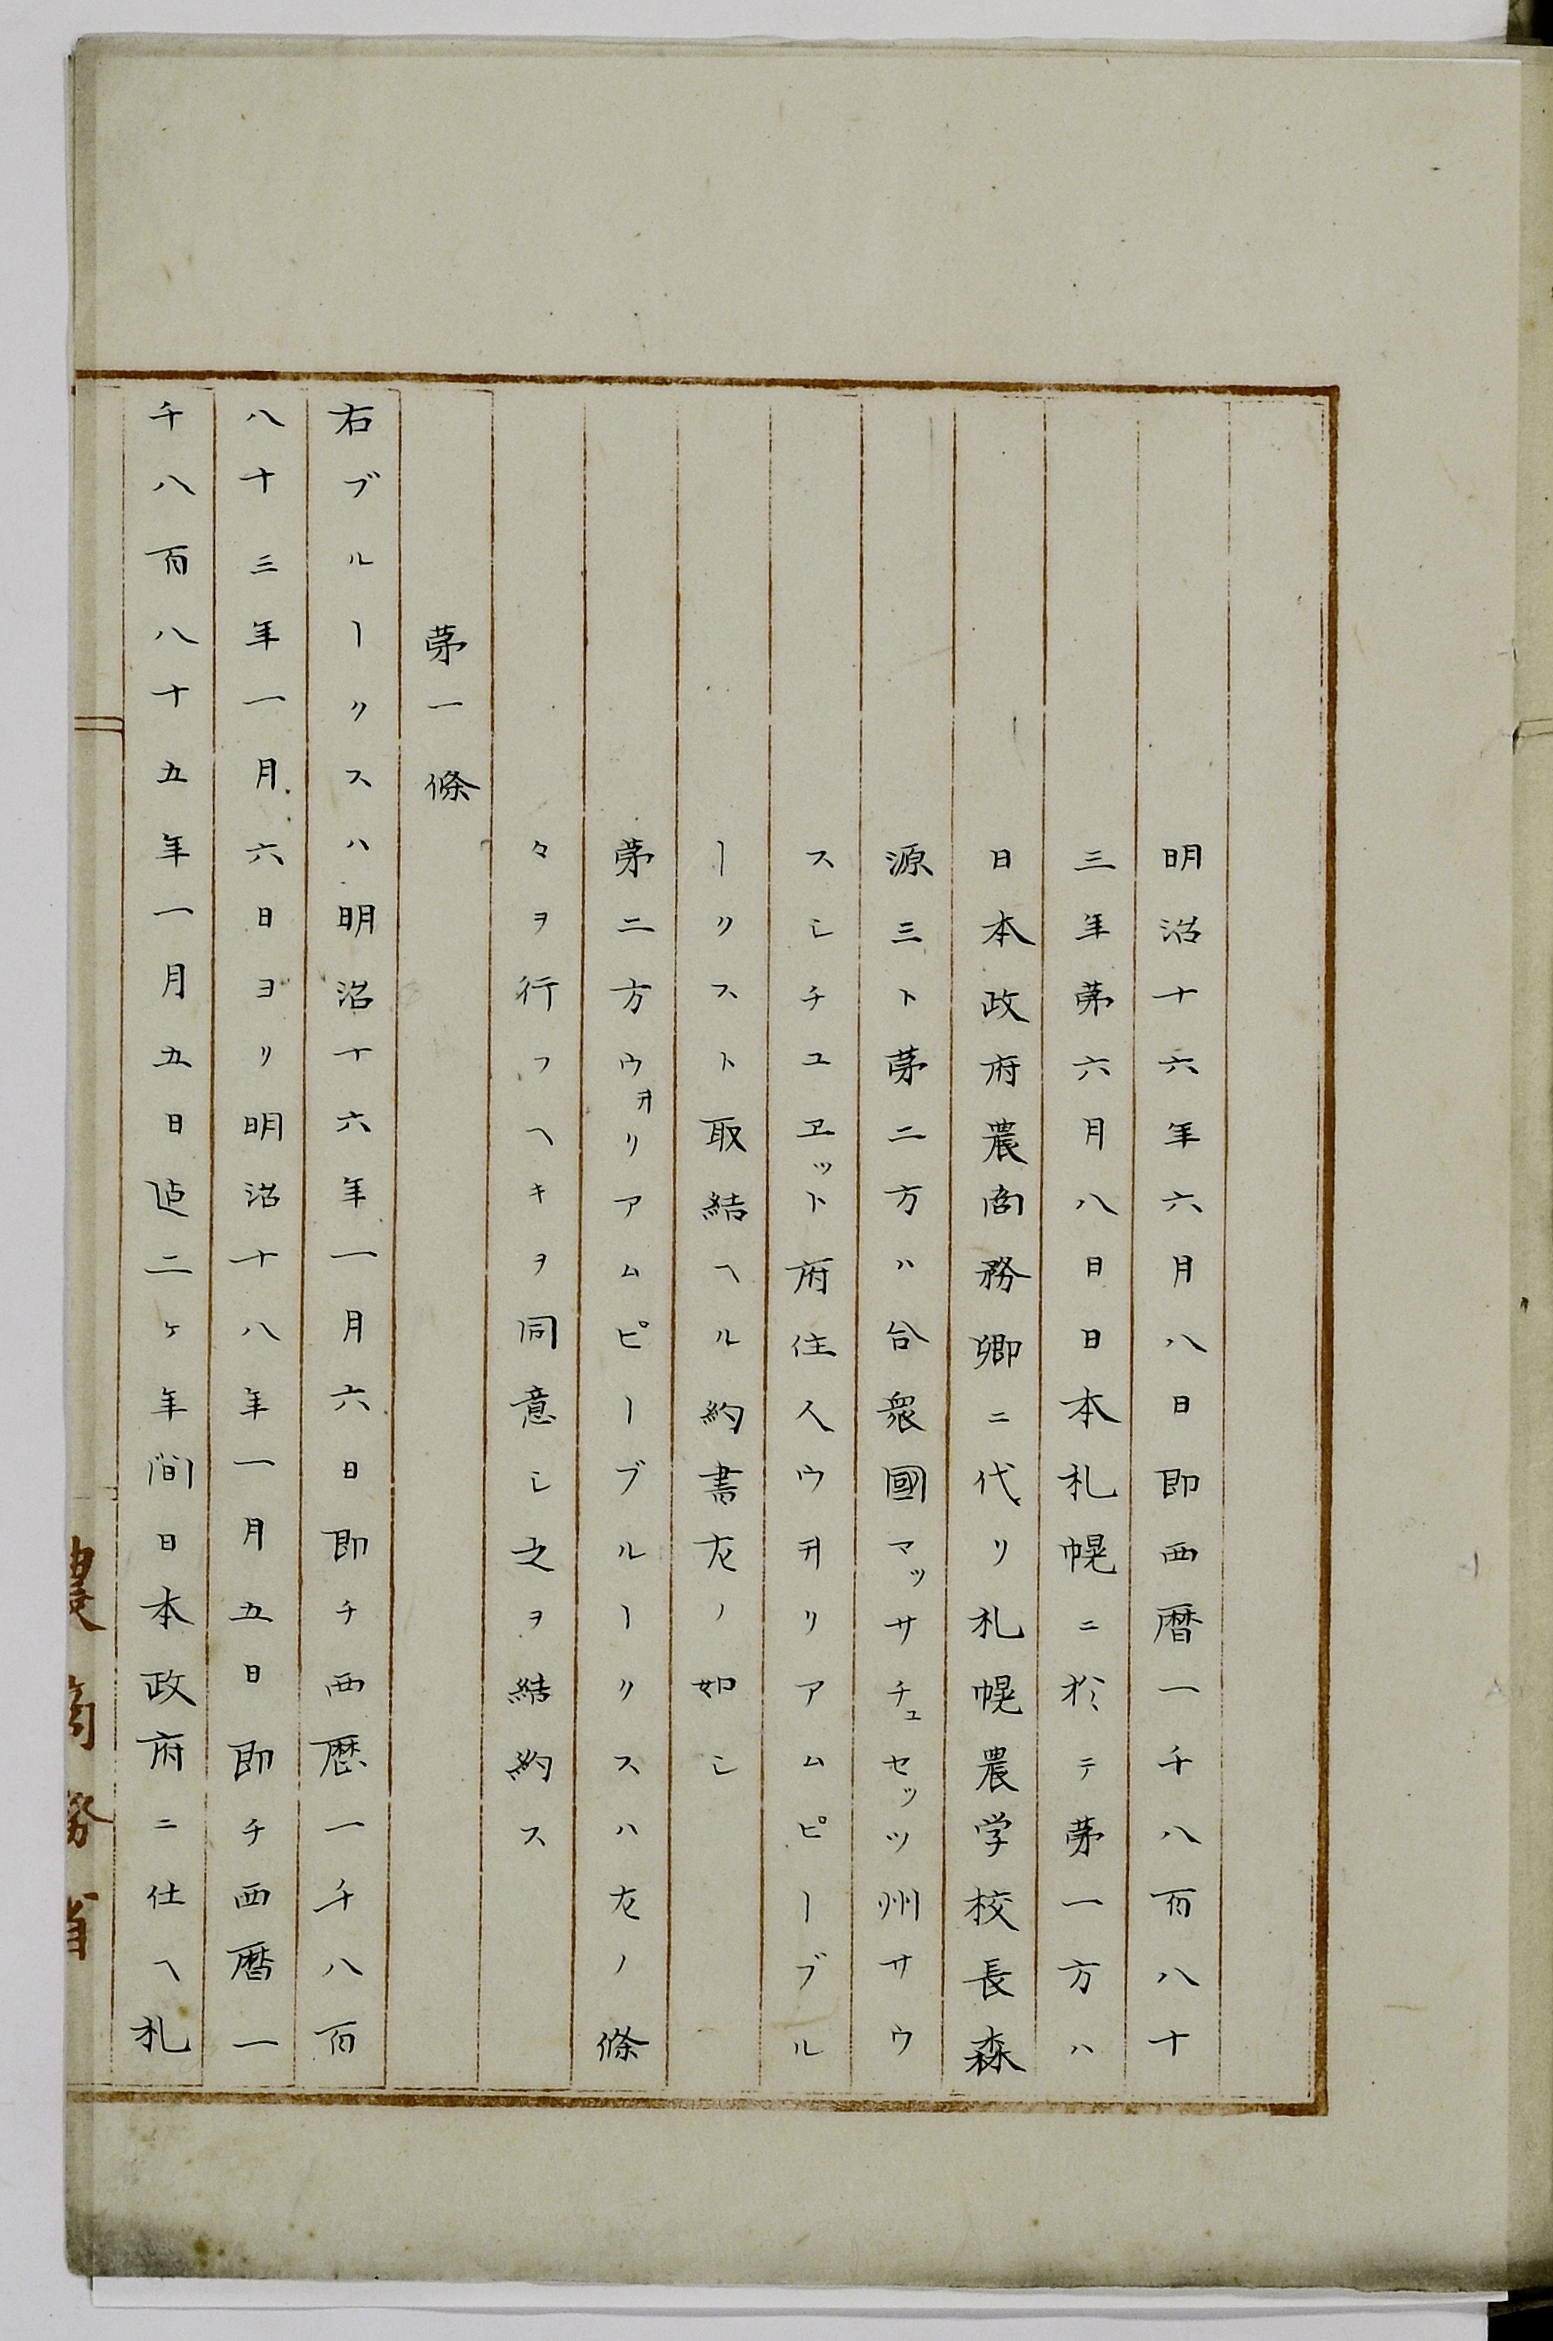 明治十六年六月八日即西暦一千八百八十
三年第六月八日日本札幌ニ於テ第一方ハ
日本政府農商務卿ニ代リ札幌農学校長森
源三ト第二方ハ合衆國マッサチュセッツ州サウ
スレチユヱット府住人ウヰリアムピーブル
ークスト取結ヘル約書左ノ如シ
第二方ウヰリアムピーブルークスハ左ノ條
々ヲ行フヘキヲ同意シ之ヲ結約ス
第一條
右ブルークスハ明治十六年一月六日即チ西歴一千八百
八十三年一月六日ヨリ明治十八年一月五日即チ西暦一
千八百八十五年一月五日迄二ヶ年間日本政府ニ仕ヘ札
農商務省